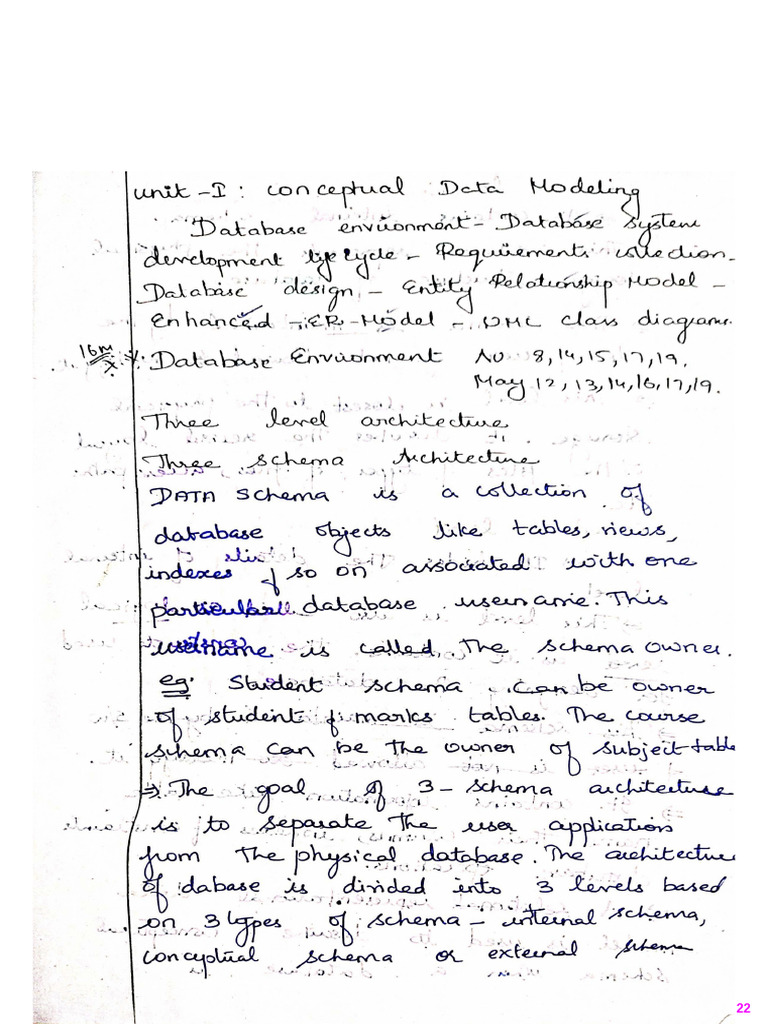 Unit - I : Conceptual Data Modeling
Database environment - Database system
development life cycle - Requirements collection -
Database design - Entity Relationship Model -
Enhanced - ER - Model - UML class diagrams.
16m Database Environment N/D 8,14,15,17,19.
May 12,13,14,16,17,19.
Three level architecture
Three schema Architecture
DATA schema is a collection of
database objects like tables, views,
indexes & so on associated with one
particular database username. This
username is called the schema owner.
eg: Student schema can be owner
of student & marks tables. The course
schema can be the owner of subject table
⇒ The goal of 3 - schema architecture
is to separate the user application
from the physical database. The architecture
of dabase is divided into 3 levels based
on 3 types of schema - internal schema,
conceptual schema or external schema
22